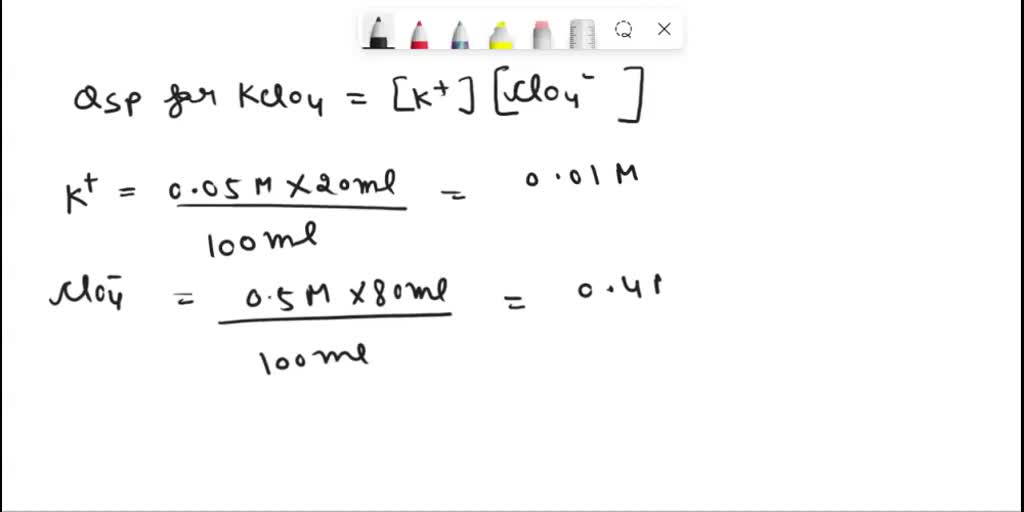 Qsp for KClO4 = [K+] [ClO4-]
K+ = 0.05 M × 20 ml / 100 ml = 0.01 M
ClO4- = 0.5 M × 80 ml / 100 ml = 0.4